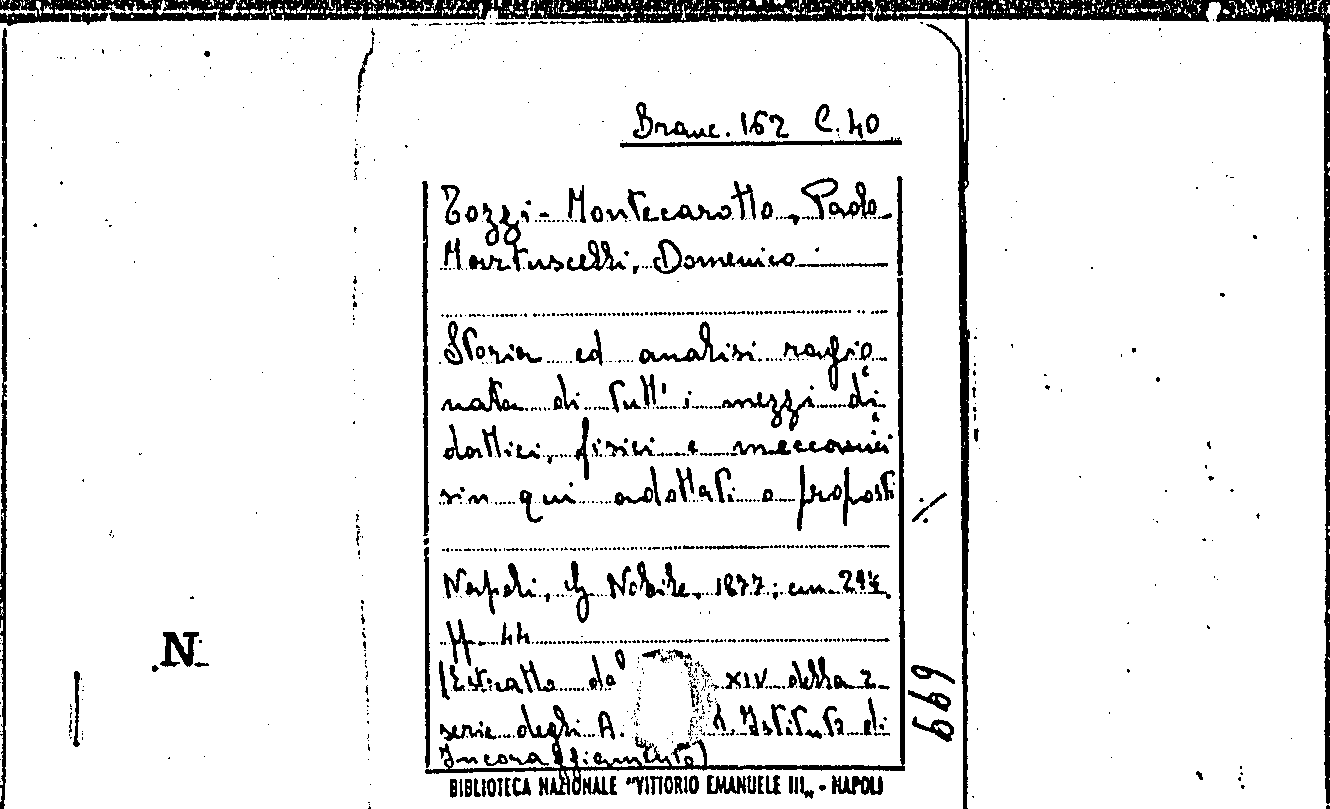 Branc. 162 C. 40
Tozzi-Montecarotto, Paolo
Martuscelli, Domenico
Storia ed analisi ragio
nata di tutt' i mezzi di
dattici, fisici e meccanici
sin qui adottati o proposti
Napoli, G. Nobile, 1877; cm.
pp. 44
(Estratto dal XIV della 2
serie degli A. d. Istituto di
Incoraggiamento)
BIBLIOTECA NAZIONALE "VITTORIO EMANUELE III" - NAPOLI
N
699